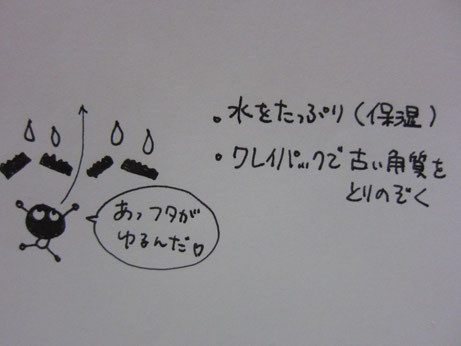 。水をたっぷり(保湿)
。クレイパックで古い角質を
とりのぞく
あっフタが
ゆるんだ。